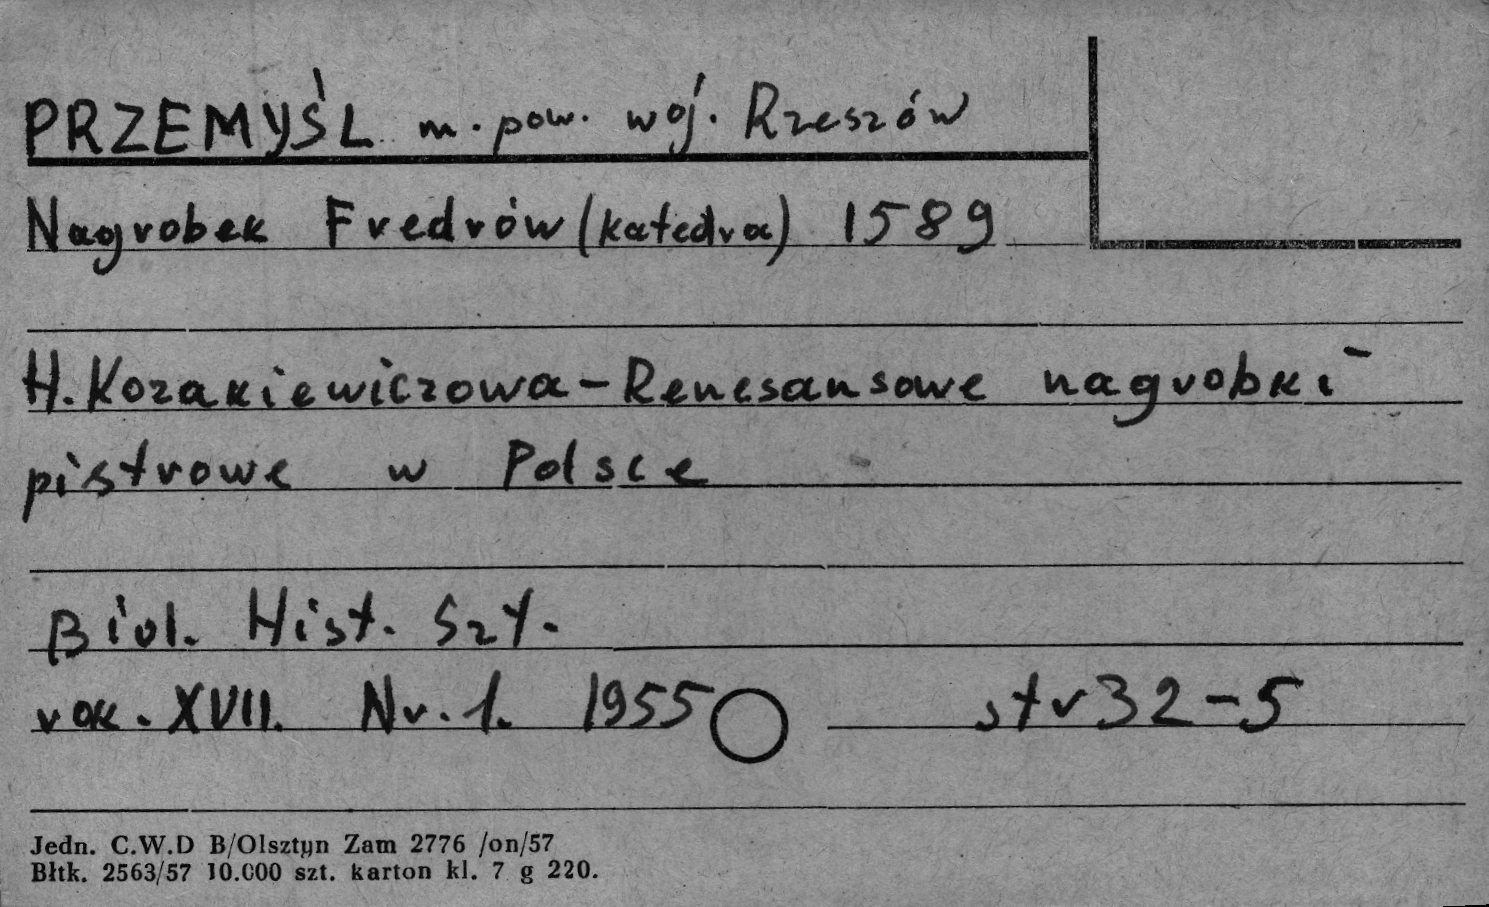 PRZEMYŚL m. pow. woj. Rzeszów
Nagrobek Fredrów (katedra) 1589
H. Kozakiewiczowa – Renesansowe nagrobki
pistrowe w Polsce
Biul. Hist. Szt.
rok. XVII. Nr. 1. 1955 str 32-5
Jedn. C.W.D B/Olsztyn Zam 2776 /on/57
Błtk. 2563/57 10.000 szt. karton kl. 7 g 220.